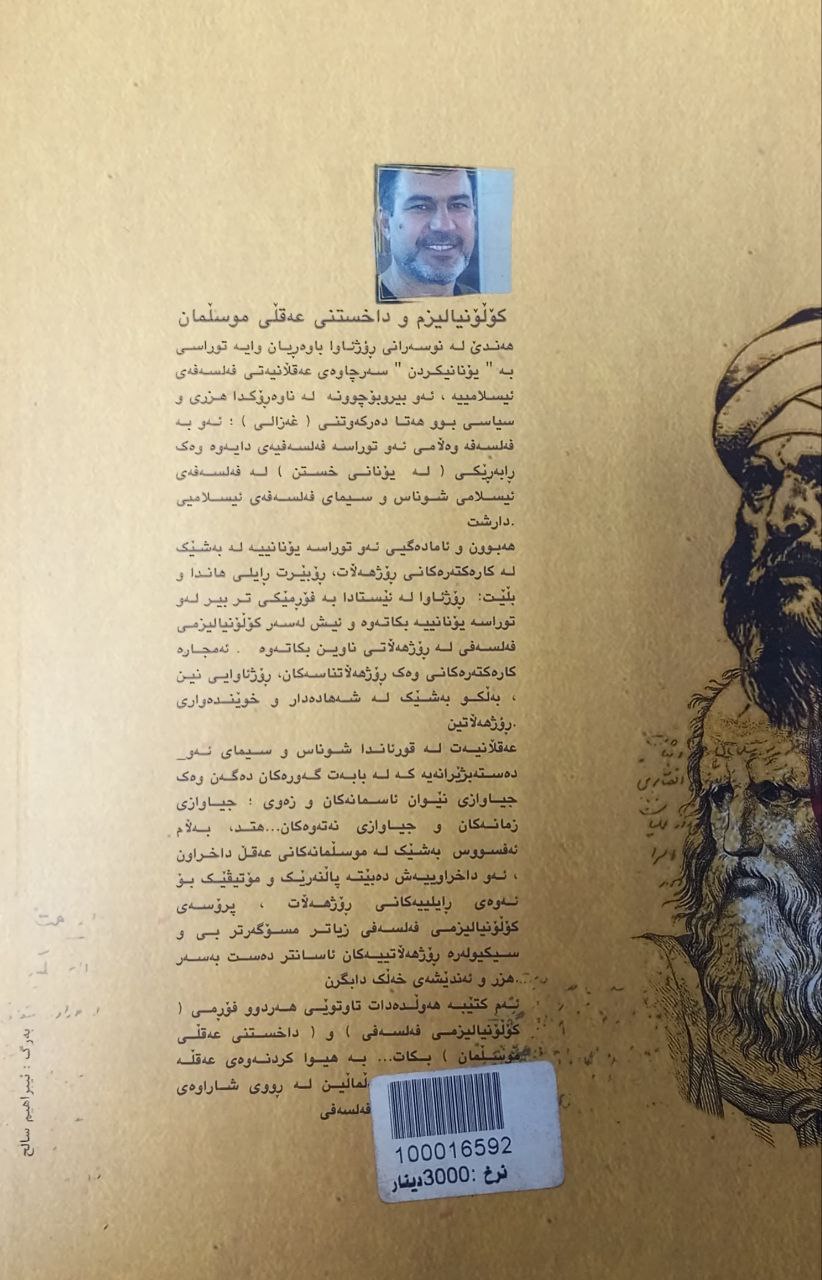 کۆڵۆنیالیزم و داخستنی عەقڵی موسڵمان
هەندێ لە نوسەرانی رۆژئاوا باوەریان وایە توراسی
بە " یۆنانیکردن " سەرچاوەی عەقڵانیەتی فلسەفەی
ئیسلامییە ، ئەو بیروبۆچوونە لە ناوەرۆکدا هزری و
سیاسی بوو هەتا دەرکەوتنی ( غەزالی ) ؛ ئەو بە
فلسەفە وەڵامی ئەو توراسە فلسەفیەی دایەوە وەک
رابەرێکی ( لە یۆنانی خستن ) لە فلسەفەی
ئیسلامی شوناس و سیمای فلسەفەی ئیسلامیی
دارشت.
هەبوون و ئامادەگیی ئەو توراسە یۆنانییە لە بەشێک
لە کارەکتەرەکانی رۆژهەڵات، رۆبێرت رایلی هاندا و
بڵێت: رۆژئاوا لە ئێستادا بە فۆرمێکی تر بیر لەو
توراسە یۆنانییە بکاتەوە و ئیش لەسەر کۆڵۆنیالیزمی
فلسەفی لە رۆژهەڵاتی ناوین بکاتەوە . ئەمجارە
کارەکتەرەکانی وەک رۆژهەڵاتناسەکان، رۆژئاوایی نین
، بەڵکو بەشێک لە شەهادەدار و خوێندەواری
رۆژهەڵاتین.
عەقڵانیەت لە قورئاندا شوناس و سیمای ئەو_
دەستەبژێرانەیە کە لە بابەت گەورەکان دەگەن وەک
جیاوازی نێوان ئاسمانەکان و زەوی ؛ جیاوازی
زمانەکان و جیاوازی نەتەوەکان...هتد، بەڵام
ئەفسووس بەشێک لە موسڵمانەکانی عەقڵ داخراون
، ئەو داخراوییەش دەبێتە پاڵنەرێک و مۆتیڤێک بۆ
ئەوەی رایلییەکانی رۆژهەڵات ، پرۆسەی
کۆڵۆنیالیزمی فلسەفی زیاتر مسۆگەرتر بی و
سیکیولەرە رۆژهەڵاتییەکان ئاسانتر دەست بەسەر
هزر و ئەندێشەی خەڵک دابگرن.
ئەم کتێبە هەوڵدەدات تاوتوێی هەردوو فۆرمی (
کۆڵۆنیالیزمی فلسەفی ) و ( داخستنی عەقڵی
موسڵمان ) بکات... بە هیوا کردنەوەی عەقڵە
لە رووی شاراوەی
فلسەفی
100016592
نرخ :3000دینار
بەرگ : ئیبراهیم سالح